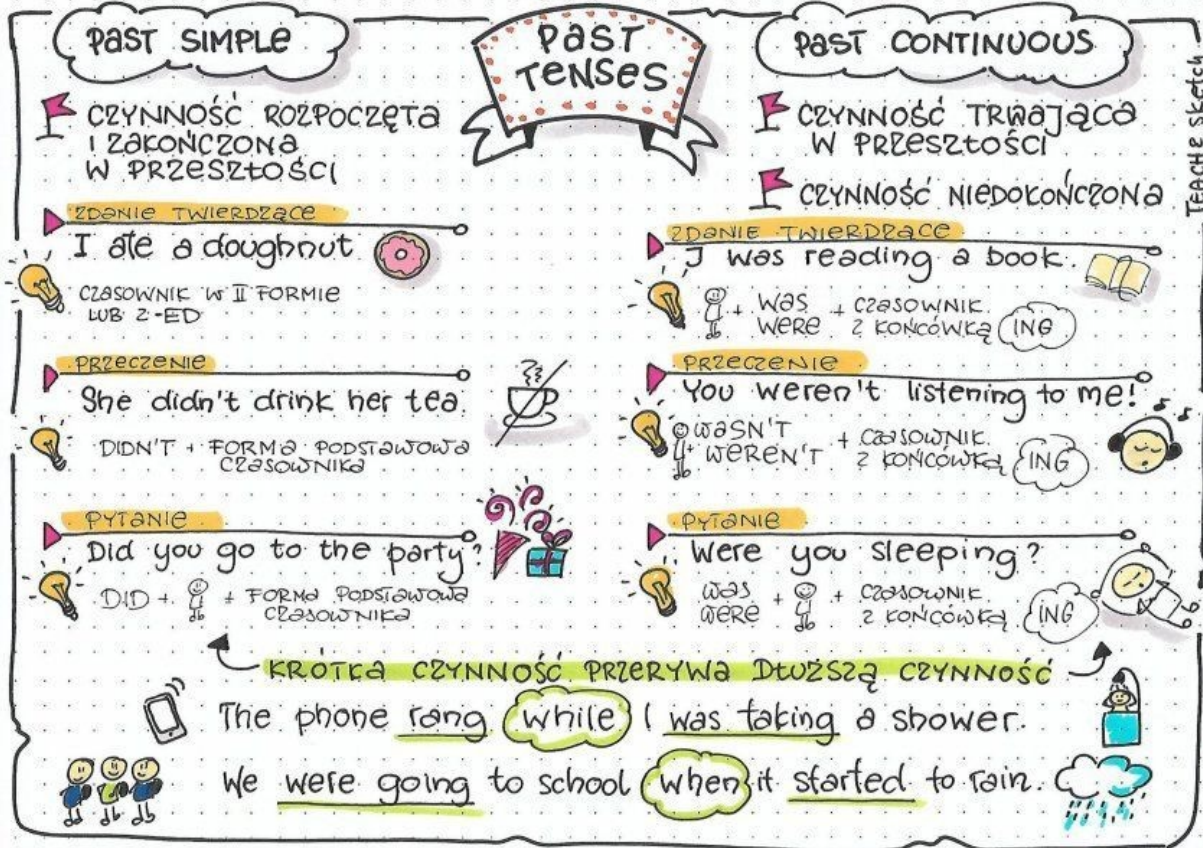 PAST TENSES
PAST SIMPLE
CZYNNOŚĆ ROZPOCZĘTA
I ZAKOŃCZONA
W PRZESZŁOŚCI
ZDANIE TWIERDZĄCE
I ate a doughnut
CZASOWNIK W II FORMIE
LUB Z -ED
PRZECZENIE
She didn't drink her tea.
DIDN'T + FORMA PODSTAWOWA
CZASOWNIKA
PYTANIE
Did you go to the party?
DID + + FORMA PODSTAWOWA
CZASOWNIKA
PAST CONTINUOUS
CZYNNOŚĆ TRWAJĄCA
W PRZESZŁOŚCI
CZYNNOŚĆ NIEDOKOŃCZONA
ZDANIE TWIERDZĄCE
I was reading a book.
+ WAS + CZASOWNIK
WERE Z KOŃCÓWKĄ ING
PRZECZENIE
You weren't listening to me!
WASN'T + CZASOWNIK
+ WEREN'T Z KOŃCÓWKĄ ING
PYTANIE
Were you sleeping?
WAS + + CZASOWNIK
WERE Z KOŃCÓWKĄ ING
KRÓTKA CZYNNOŚĆ PRZERYWA DŁUŻSZĄ CZYNNOŚĆ
The phone rang while I was taking a shower.
We were going to school when it started to rain.
Teacher sketch